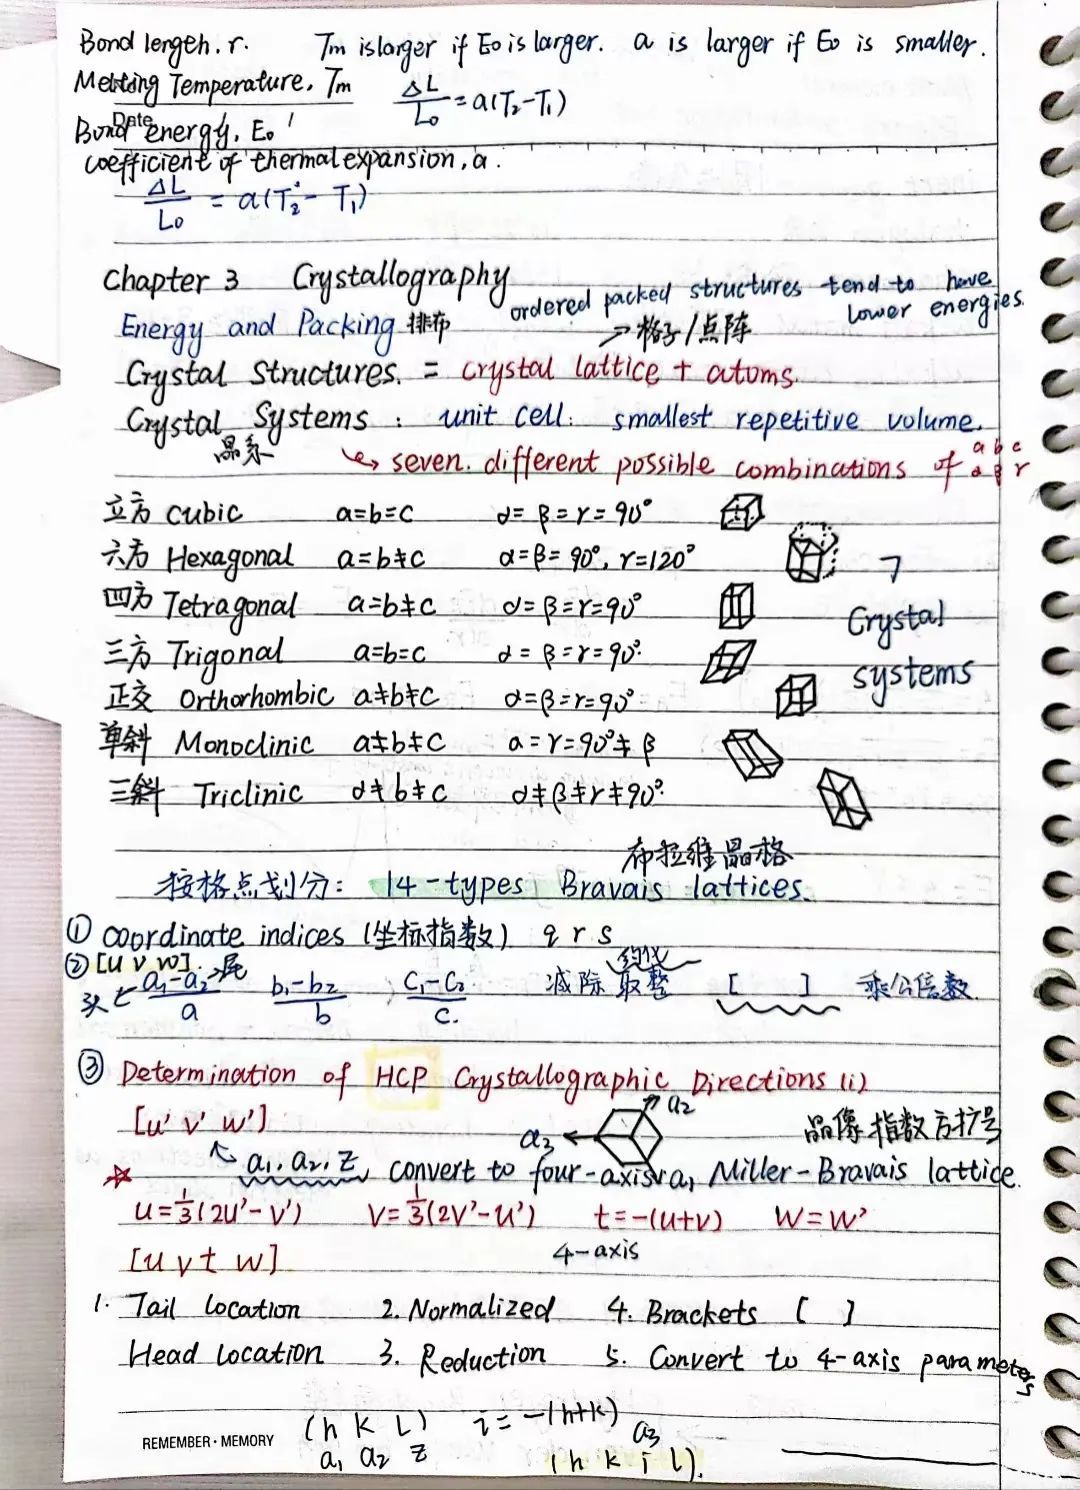 Bond length. r.    Tm is larger if E₀ is larger.   a is larger if E₀ is smaller.
Melting Temperature, Tm    ΔL/L₀ = a(T₂-T₁)
Date
Bond energy, E₀
coefficient of thermal expansion, a.
ΔL/L₀ = a(T₂ - T₁)
Chapter 3    Crystallography
ordered packed structures tend to have lower energies.
Energy and Packing 排布    → 格子/点阵
Crystal Structures. = crystal lattice + atoms.
Crystal Systems : unit cell: smallest repetitive volume.
晶系    ↪ seven. different possible combinations of a b c α β γ
立方 cubic    a=b=c    α=β=γ=90°
六方 Hexagonal    a=b≠c    α=β=90°, γ=120°    7
四方 Tetragonal    a=b≠c    α=β=γ=90°    Crystal
三方 Trigonal    a=b=c    α=β=γ=90°.    systems
正交 Orthorhombic    a≠b≠c    α=β=γ=90°
单斜 Monoclinic    a≠b≠c    α=γ=90°≠β
三斜 Triclinic    a≠b≠c    α≠β≠γ≠90°.
布拉维晶格
按格点划分: 14-types Bravais lattices.
① coordinate indices (坐标指数)  q r s
② [u v w].    约化
头← (a₁-a₂)/a →尾    (b₁-b₂)/b    (c₁-c₂)/c.    减除 取整    [    ]    乘公倍数
③ Determination of HCP Crystallographic Directions (i)
[u' v' w']    a₃    a₂    晶像指数方扩号
☆ ↖ a₁. a₂. z, convert to four-axis a₁ Miller-Bravais lattice.
u=1/3(2u'-v')    v=1/3(2v'-u')    t=-(u+v)    w=w'
[u v t w]    4-axis
1. Tail location    2. Normalized    4. Brackets [  ]
Head location    3. Reduction    5. Convert to 4-axis parameters
(h k l)    i=-(h+k)
a₁ a₂ z    a₃
(h k i l).
REMEMBER·MEMORY